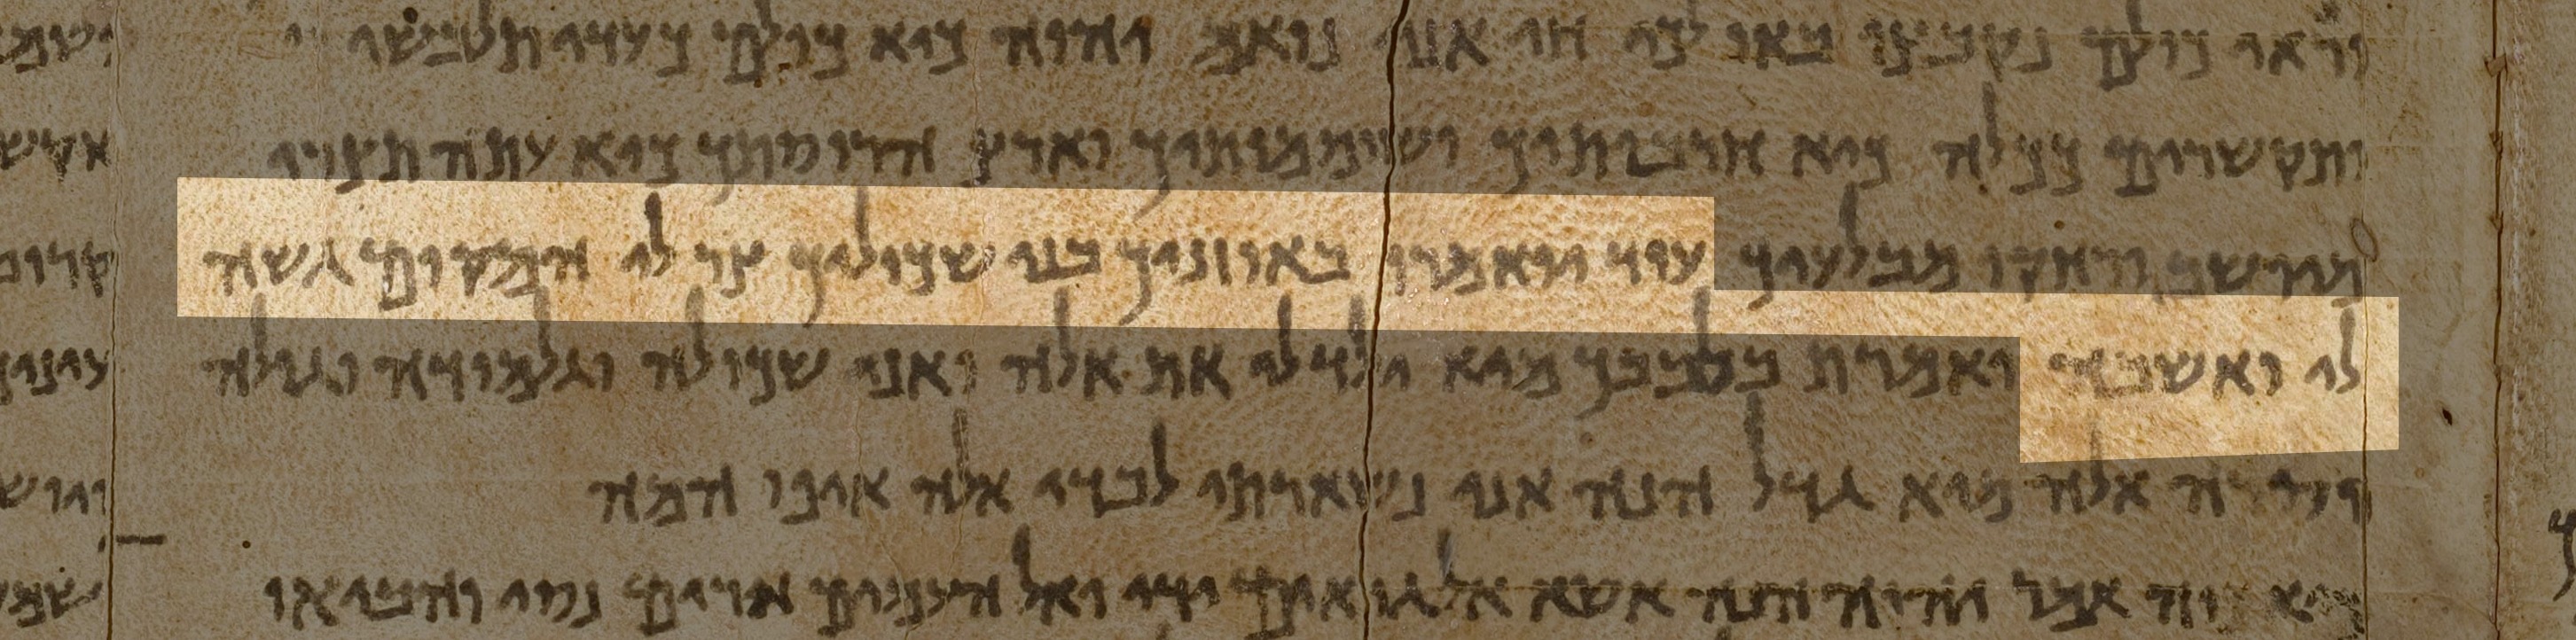 וראי כולם נקבצו באו לכי חי אני נואם יהוה כיא כולם כעדי תלבשי
ותקשרים ככלה כיא חרבותיך ושוממותיך וארץ הריסתך כיא עתה תצרי
מיושב ורחקו מבלעיך עוד יואמרו באוזניך בני שכוליך צר לי המקום גשה
לי ואשבה ואמרת בלבבך מיא ילד לי את אלה ואני שכולה וגלמודה וגולה
וסרה אלה מיא גדל הנה אני נשארתי לבדי אלה איפו המה
כיא אמר יהוה הנה אשא אל גואים ידי ואל העמים ארים נסי והביאו